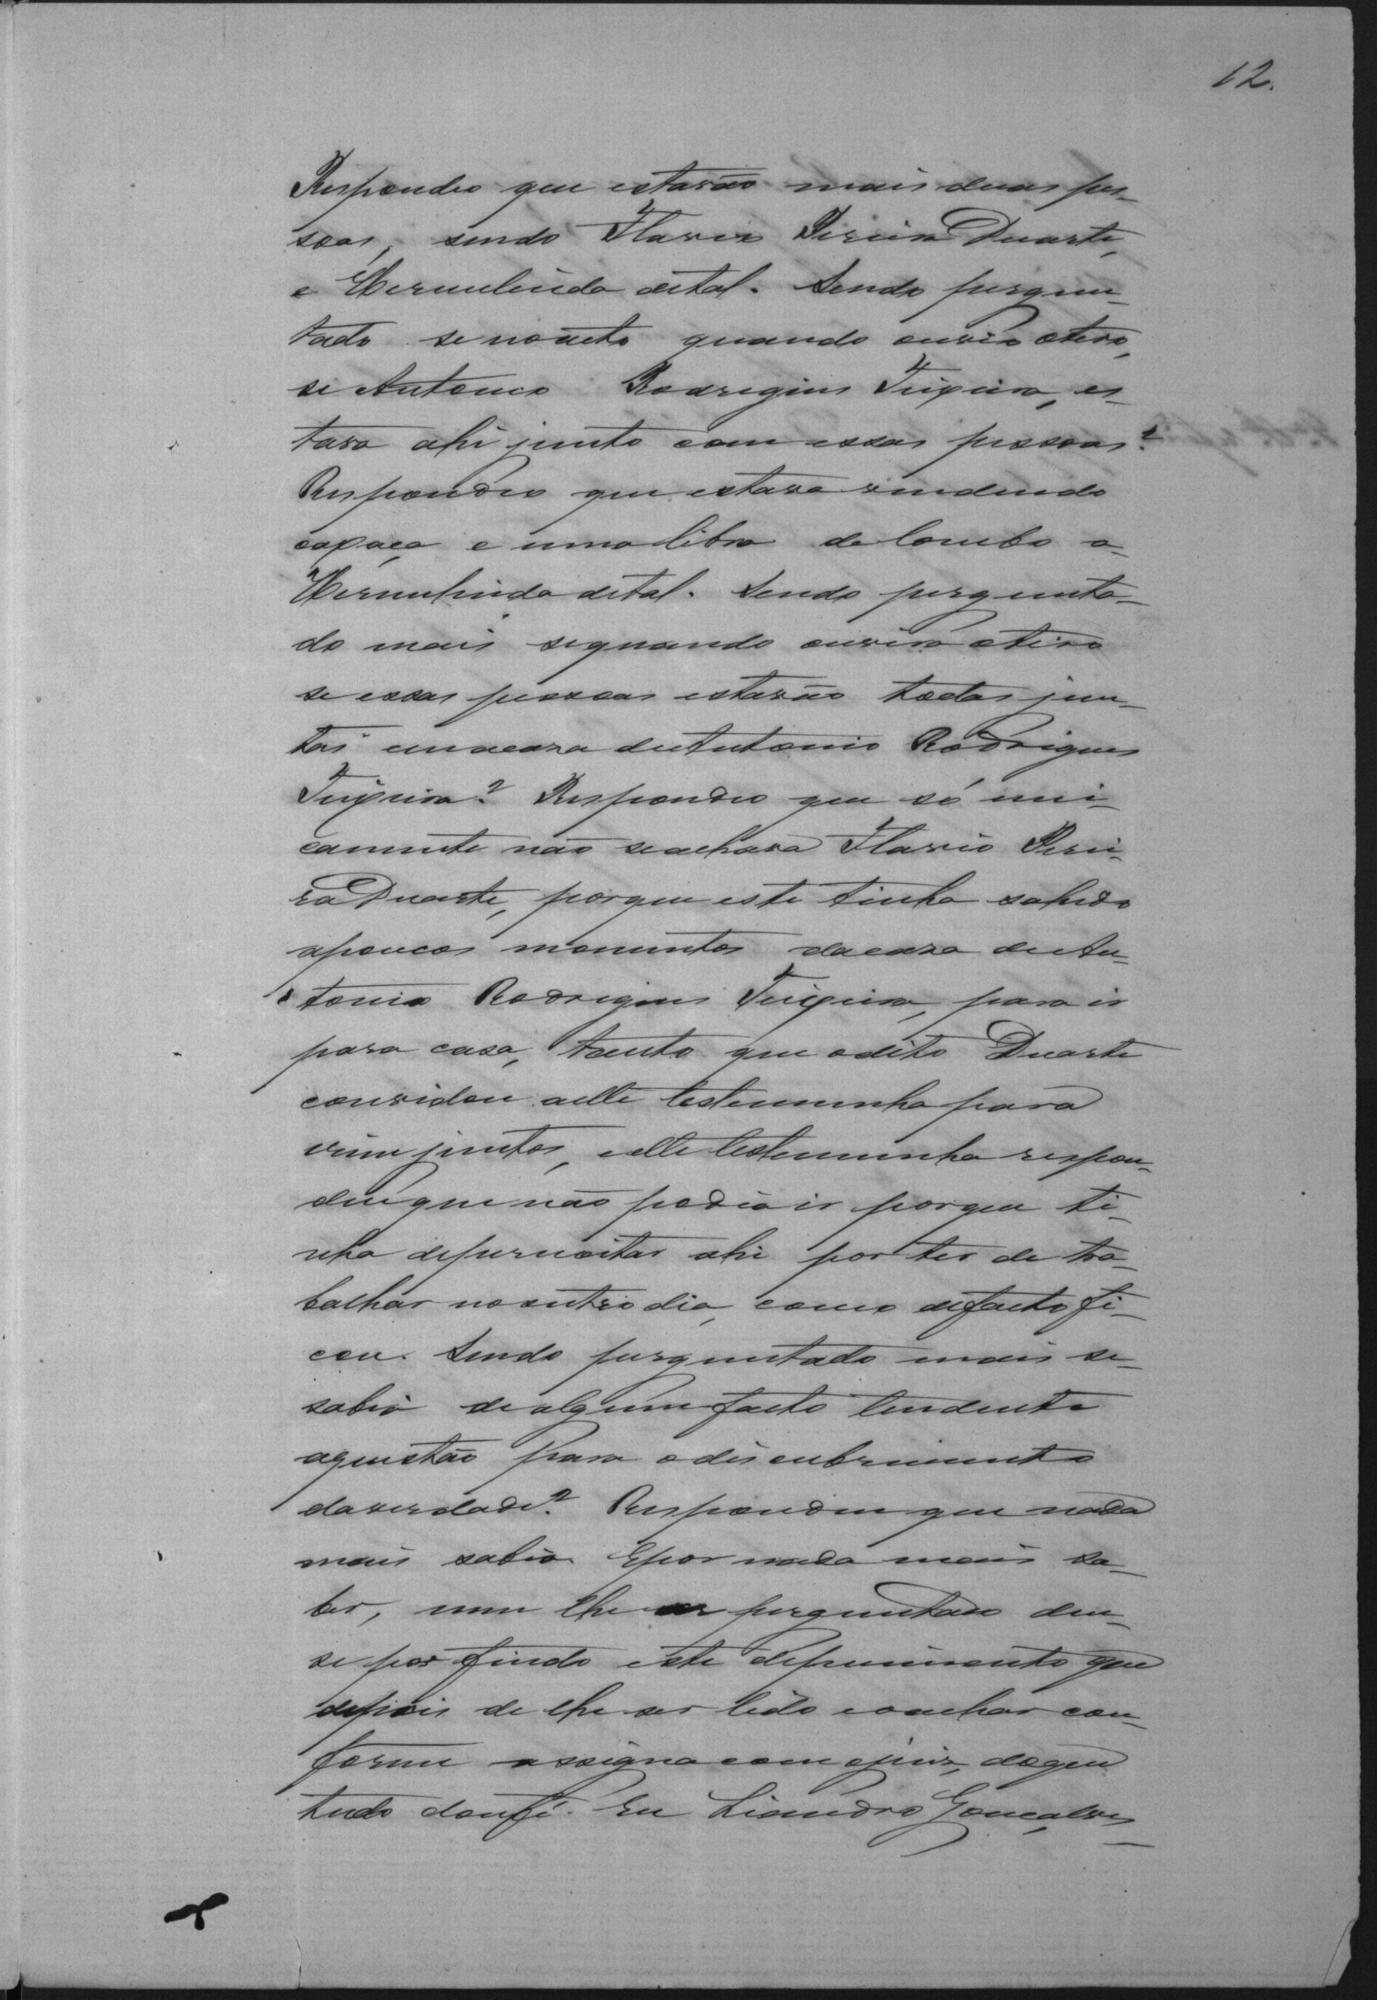 12.
Respondeo que estavão mais duas pes-
soas, sendo Flavio Pereira Duarte,
e Hermelinda detal. Sendo pergun-
tado se noacto quando ouvio otiro,
se Antonio Rodrigues Teixeira, es-
tava ahi junto com essas pessoas?
Respondeo que estava vendendo
caxaça e umalibra de lombo a-
Hermelinda detal. Sendo pergunta-
do mais sequando ouvira otiro
se essas pessoas estavão todas jun-
tas emacaza deAntonio Rodrigues
Teixeira? Respondeo que só uni-
camente não seachava Flavio Perei-
ra Duarte, porque este tinha sahido
apoucos momentos dacaza deAn-
tonio Rodrigues Teixeira, para ir
para casa, tanto que odito Duarte
convidou aelle testemunha para
virem juntos, eelle testemunha respon-
deu que não podia ir porque ti-
nha depernoitar ahi por ter de tra-
balhar nooutro dia, como defacto fi-
cou. Sendo perguntado mais se-
sabia dealgum facto tendente
aquestão para odiscubrimento
daverdade? Respondeu que nada
mais sabia. Epor nada mais sa-
ber, nem lhe ser perguntado deu-
se por findo este depuimento que
depois de lhe ser lido eoachar con-
forme assigna com ojuiz, doque
tudo doufé. Eu Liandro Gonçalves